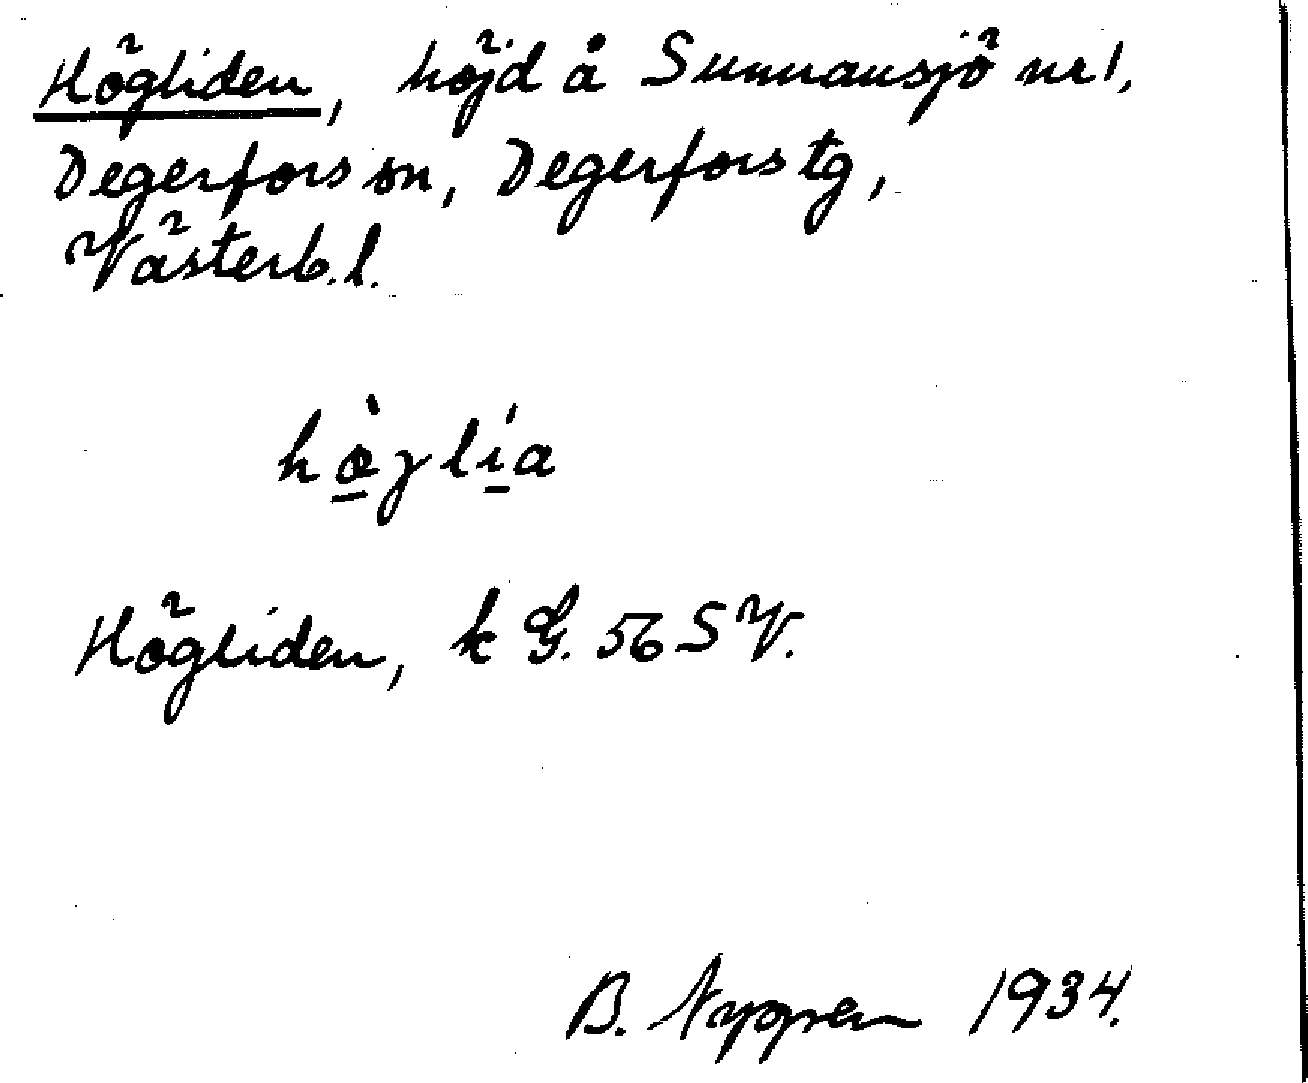 Högliden, höjd å Sunnansjö nr 1,
Degerfors sn, Degerfors tg,
Västerb. l.
hø̀ɡlía
Högliden, k G. 56 SV.
B. 1934.